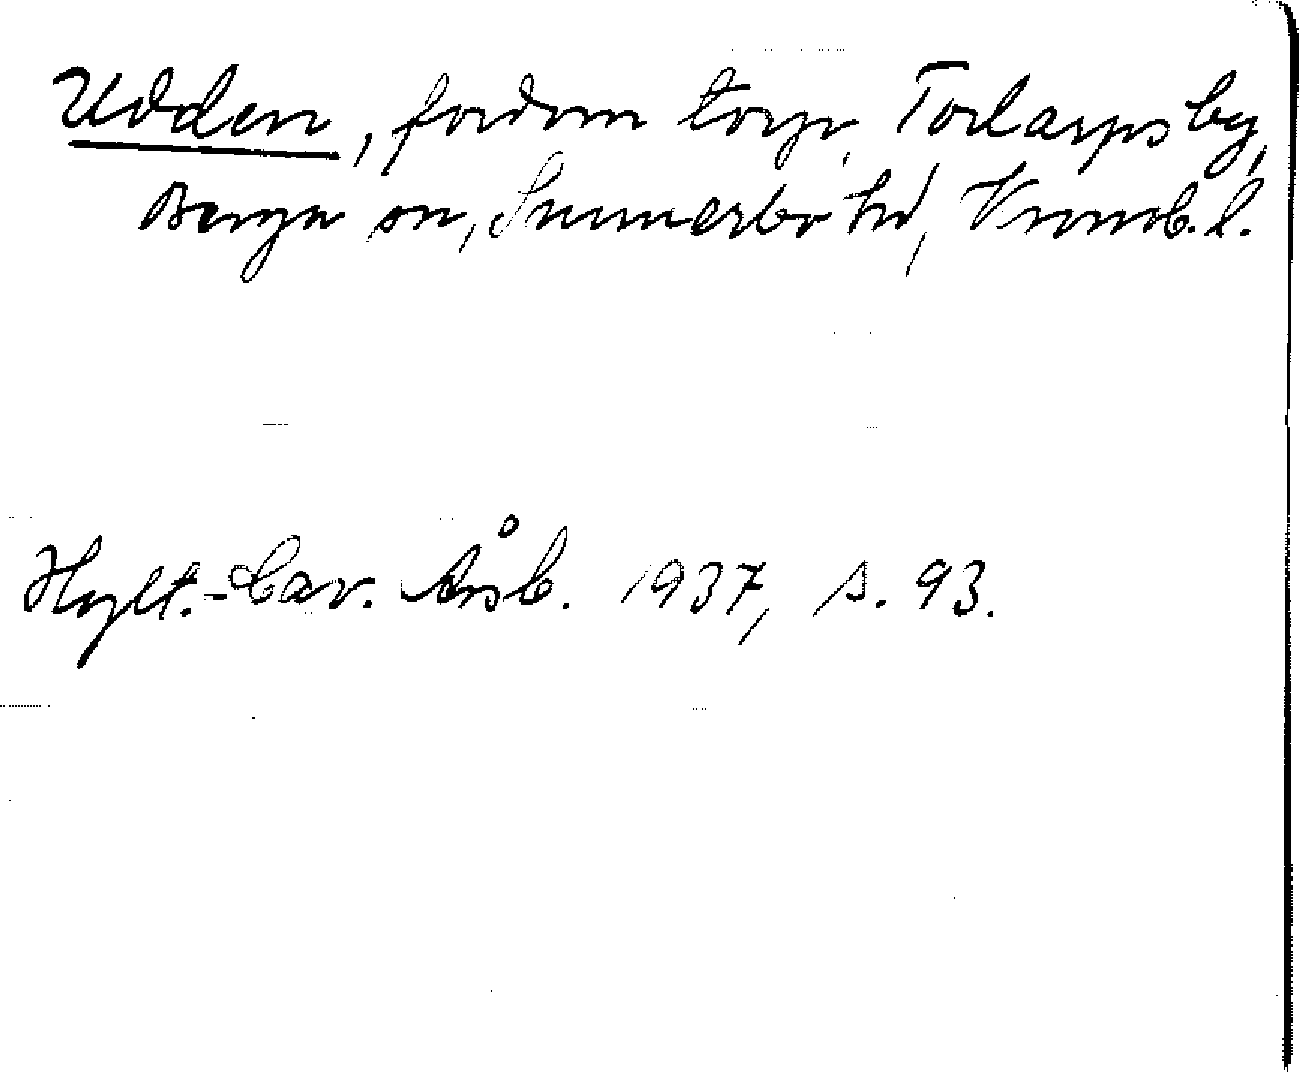 Udden, fordom torp, Torlarps by,
Berga sn, Sunnerbo hd, Kronob. l.
Hylt.-Cav. Årsb. 1937, s. 93.